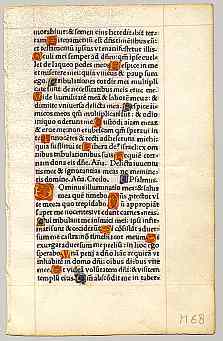 morabitur: & semen eius hereditabit ter-
ram. Firmamentũ est dñs timẽtibus eũ:
et testamentũ ipsius vt manifestetur illis.
Oculi mei semper ad dñm: qm̃ ipse euel-
let de laqueo pedes meos. Respice in me
et miserere mei: quia vnicus & paup sum
ego. Tribulationes cordis mei multipli-
cate sunt: de necessitatibus meis erue me.
Vide humilitatẽ meã & laborẽ meũ: &
dimitte vniuersa delicta mea. Respice ini-
micos meos qm̃ multiplicati sũt: & odio
iniquo oderunt me. Custodi aĩam meam
& erue me: non erubescam qm̃ speraui in
te. Innocẽtes & recti adheserunt michi:
quia sustinui te. Libera deus israel: ex om-
nibus tribulationibus suis. Requiẽ eter-
nam dona eis dñe. Añ. Delicta iuuentu
tis mee & ignorantias meas ne memine-
ris domine. Añ. Credo. Psalmus.
Dominus illuminatio mea: & salus
mea quẽ timebo. Dñs ptector vi-
te mee: a quo trepidabo. Dũ appropiãt
super me nocentes: vt edant carnes meas.
Qui tribulant me inimici mei: ipsi infir-
mati sunt & ceciderũt. Si cõsistãt aduer-
sum me castra: nõ timebit cor meum. Si
exurgat aduersum me prelium: in hoc ego
sperabo. Vnã petij a dño hãc requirã vt
inhabitẽ in domo dñi: oĩbus diebus vite
mee. Vt videã volũtatem dñi: & visitem
templũ eius. Qm̃ abscõdit me in taber-
M68